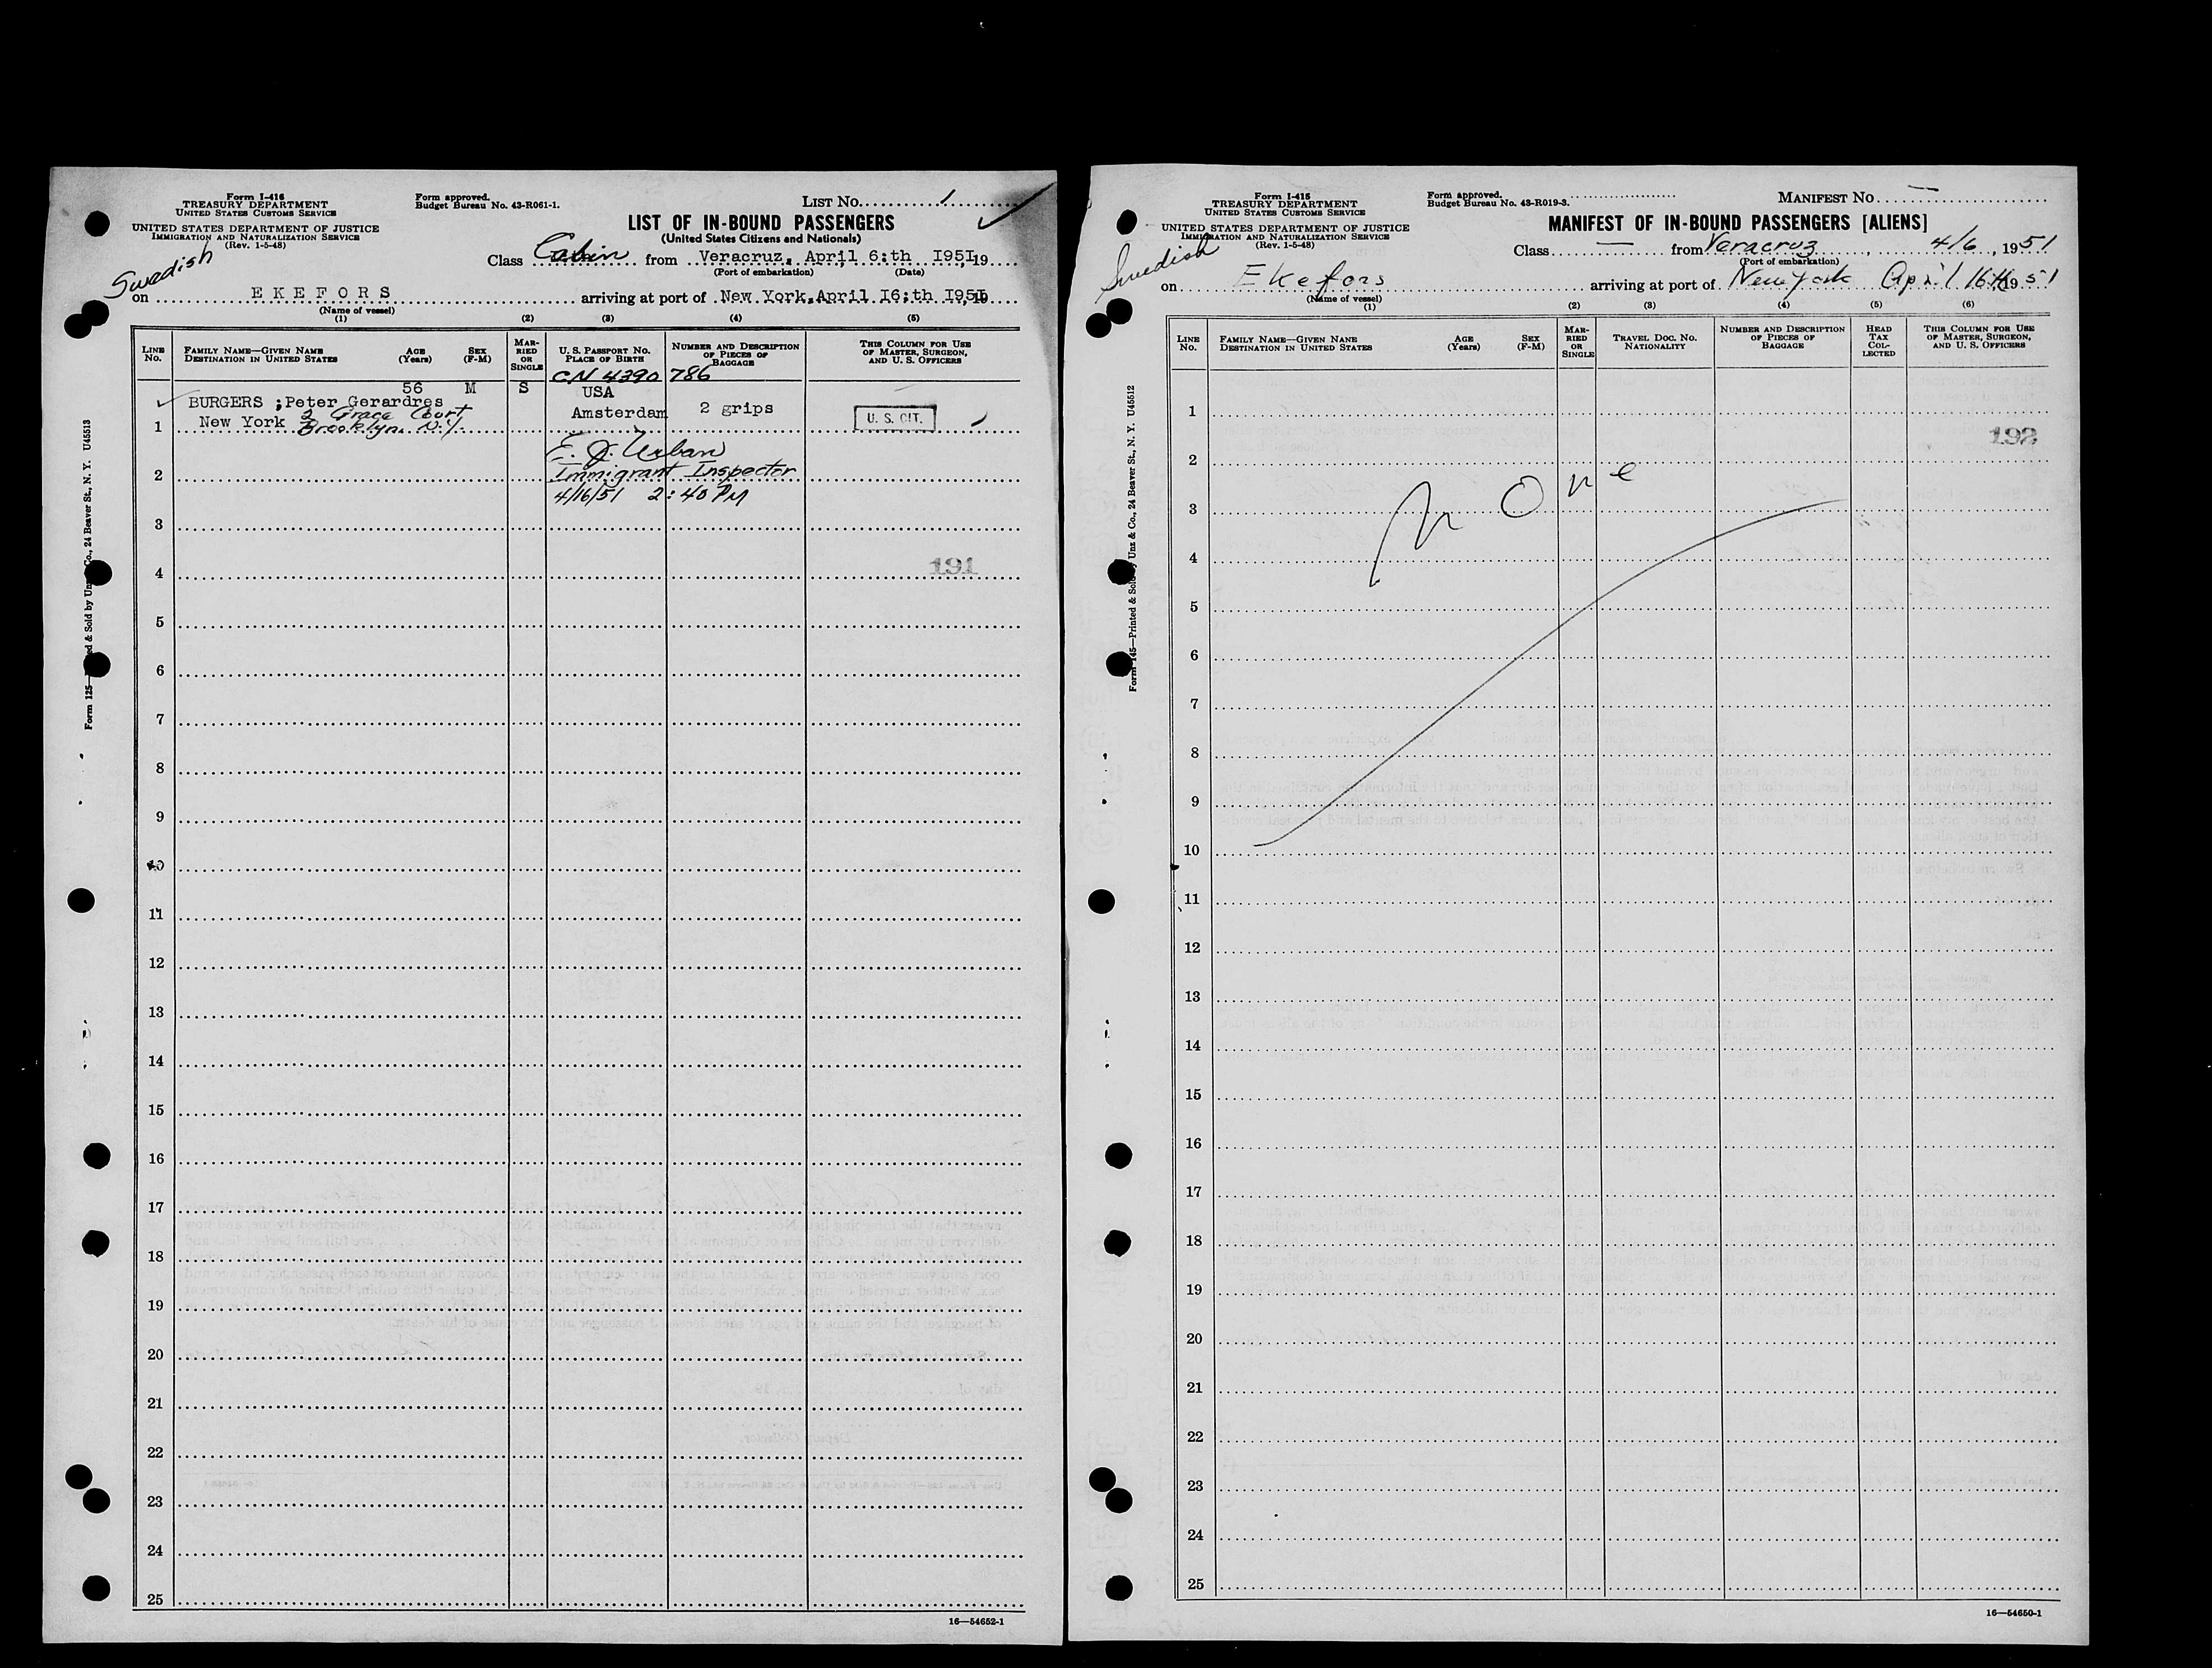 Form I-416
TREASURY DEPARTMENT
UNITED STATES CUSTOMS SERVICE
UNITED STATES DEPARTMENT OF JUSTICE
IMMIGRATION AND NATURALIZATION SERVICE
(Rev. 1-5-48)
Form approved.
Budget Bureau No. 43-R061-1.
LIST No. 1
LIST OF IN-BOUND PASSENGERS
(United States Citizens and Nationals)
Swedish
Class Cabin from Veracruz, April 6:th I951, 19
(Port of embarkation) (Date)
on EKEFORS arriving at port of New York, April I6:th I951, 19
(Name of vessel)
(1) (2) (3) (4) (5)
LINE No. FAMILY NAME—GIVEN NAME DESTINATION IN UNITED STATES AGE (Years) SEX (F-M) MARRIED OR SINGLE U. S. PASSPORT No. PLACE OF BIRTH NUMBER AND DESCRIPTION OF PIECES OF BAGGAGE THIS COLUMN FOR USE OF MASTER, SURGEON, AND U. S. OFFICERS
CN 4390 786
56 M S USA
BURGERS ;Peter Gerardres Amsterdam 2 grips U. S. CIT.
2 Grace Court
1 New York Brooklyn. N.Y.
E. J. Urban
2 Immigrant Inspector
4/16/51 2:40 PM
3
4 191
5
6
7
8
9
10
11
12
13
14
15
16
17
18
19
20
21
22
23
24
25
16—54652-1
Form 125—Printed & Sold by Unz & Co., 24 Beaver St., N. Y. U45513
Form I-415
TREASURY DEPARTMENT
UNITED STATES CUSTOMS SERVICE
UNITED STATES DEPARTMENT OF JUSTICE
IMMIGRATION AND NATURALIZATION SERVICE
(Rev. 1-5-48)
Form approved.
Budget Bureau No. 43-R019-3.
MANIFEST No. —
MANIFEST OF IN-BOUND PASSENGERS [ALIENS]
Swedish
Class — from Veracruz, 4/6, 1951
(Port of embarkation)
on Ekefors arriving at port of New York April 16th 1951
(Name of vessel)
(1) (2) (3) (4) (5) (6)
LINE No. FAMILY NAME—GIVEN NAME DESTINATION IN UNITED STATES AGE (Years) SEX (F-M) MARRIED OR SINGLE TRAVEL DOC. No. NATIONALITY NUMBER AND DESCRIPTION OF PIECES OF BAGGAGE HEAD TAX COLLECTED THIS COLUMN FOR USE OF MASTER, SURGEON, AND U. S. OFFICERS
1
192
2
None
3
4
5
6
7
8
9
10
11
12
13
14
15
16
17
18
19
20
21
22
23
24
25
16—54650-1
Form 145—Printed & Sold by Unz & Co., 24 Beaver St., N. Y. U45512